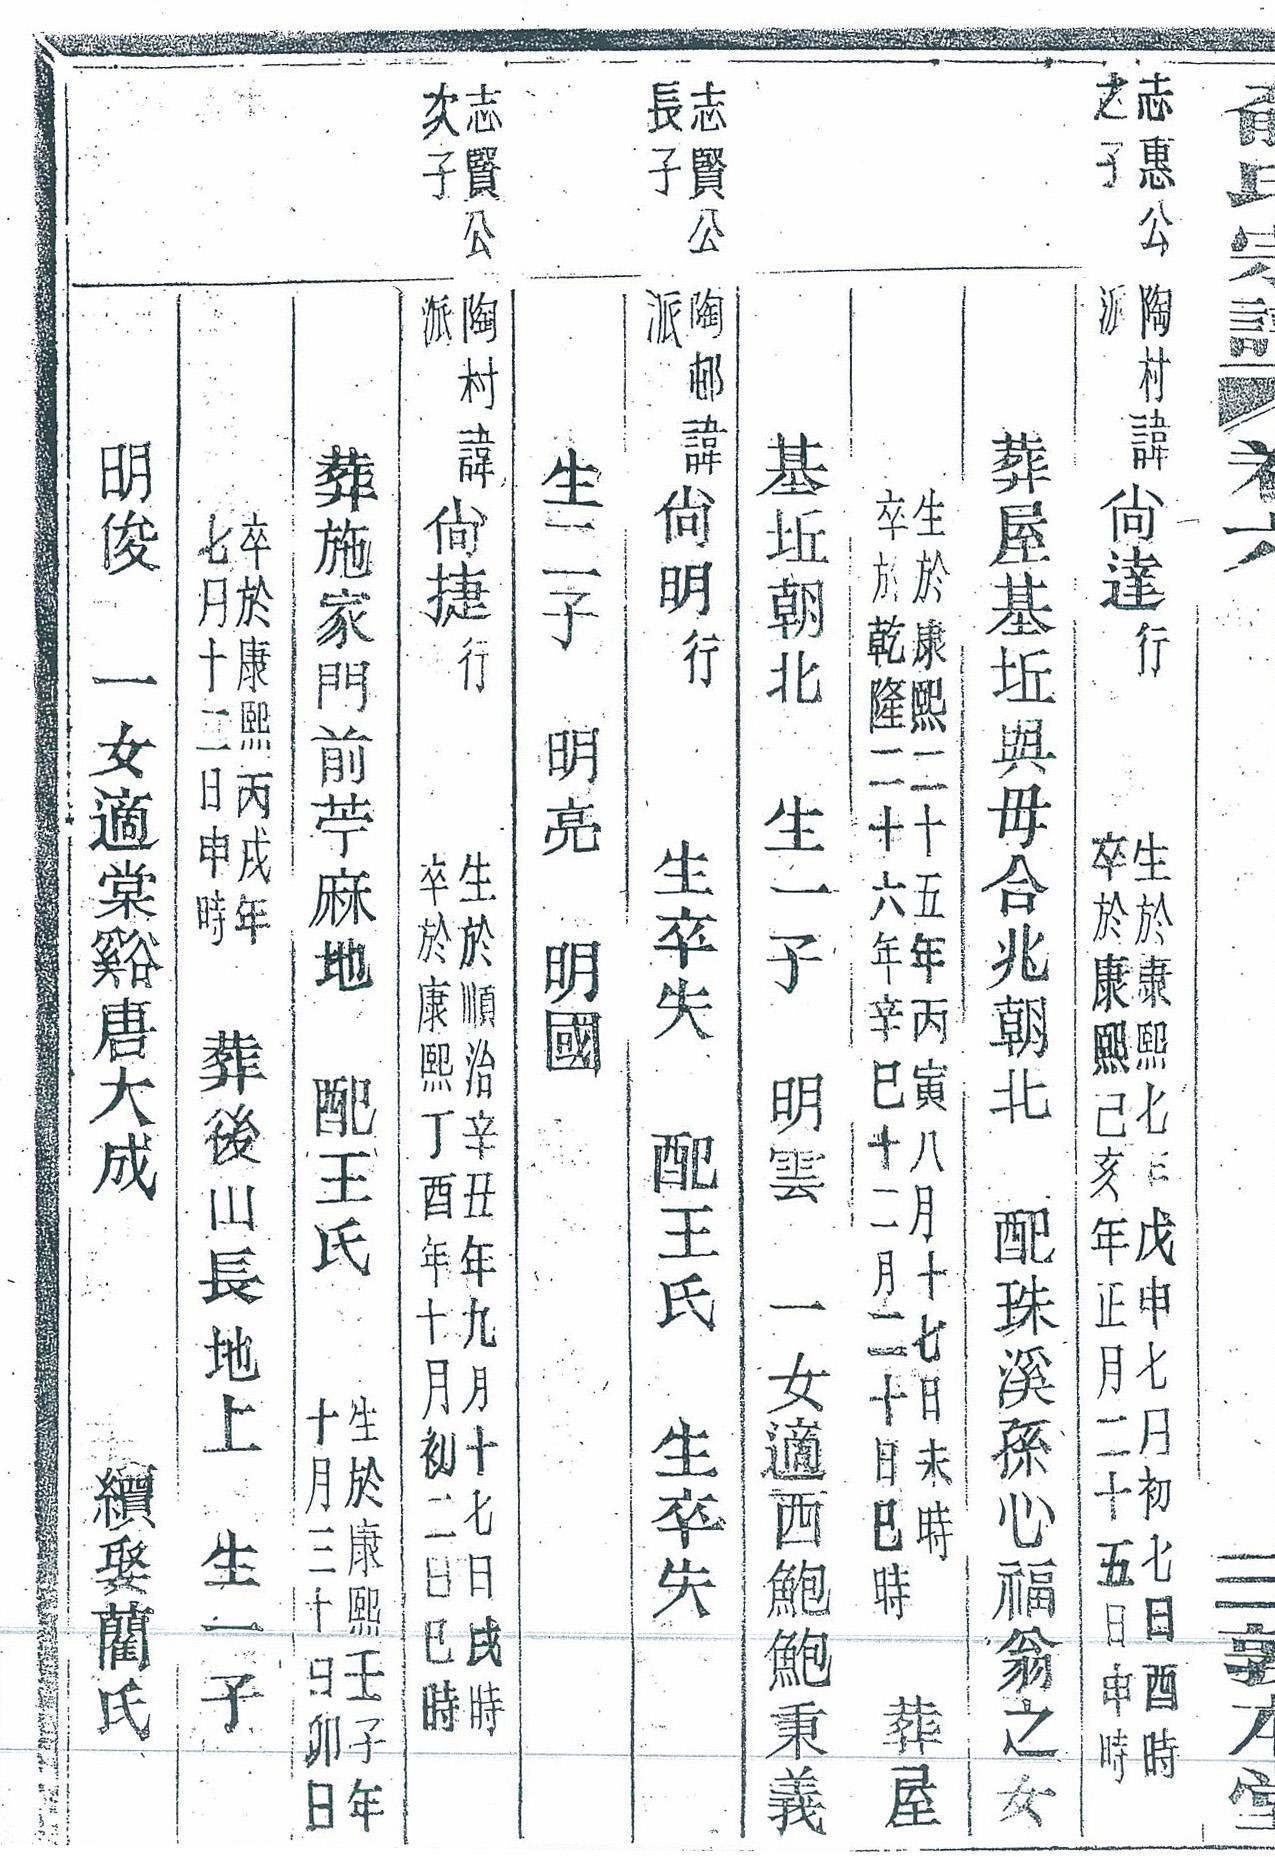 俞氏宗譜 卷六 三 敦本堂
志惠公
之子
陶村諱
派
尙達
行
生於康熙七年戊申七月初七日酉時
卒於康熙己亥年正月二十五日申時
葬屋基坵與毋合兆朝北 配珠溪孫心福翁之女
生於康熙二十五年丙寅八月十七日未時
卒於乾隆二十六年辛巳十二月二十日巳時
葬屋
基坵朝北 生一子 明雲 一女適西鮑鮑秉義
志賢公
長子
陶邨諱
派
尙明
行
生卒失 配王氏 生卒失
生二子 明亮 明國
志賢公
次子
陶村諱
派
尙捷
行
生於順治辛丑年九月十七日戌時
卒於康熙丁酉年十月初二日巳時
葬施家門前苧麻地 配王氏
生於康熙壬子年
十月三十日卯日
卒於康熙丙戌年
七月十二日申時
葬後山長地上 生一子
明俊 一女適棠谿唐大成 續娶藺氏